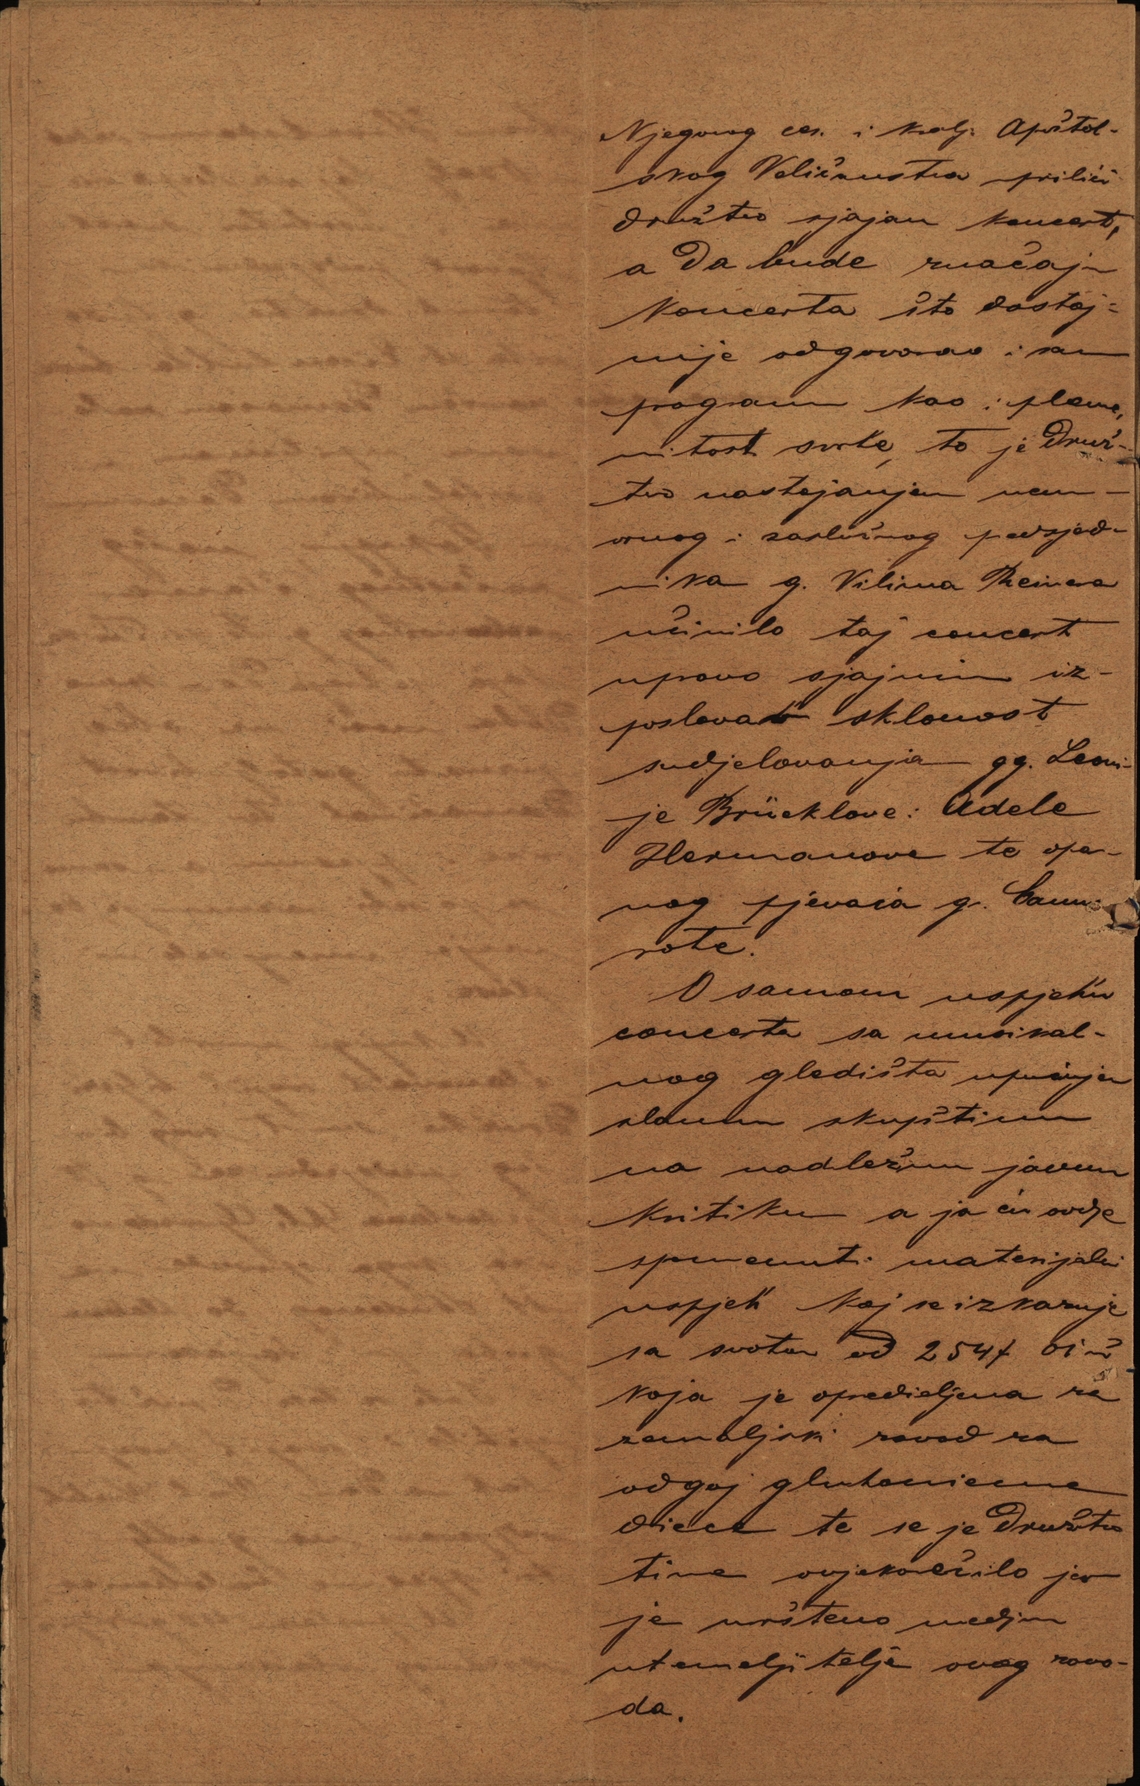 Njegovog ces. i kralj. Apoštol-
skog Veličanstva prilici
družtvo sjajan koncert,
a da bude značaju
koncerta što dostoj-
nije odgovarao i sam
program kao i pleme,
nitost svrhe, to je Druž-
tvo nastojanjem neum-
ornog i zaslužnog predsjed-
nika g. Vilima Reinera
učinilo taj concert
upravo sjajnim iz-
poslovav sklonost
sudjelovanja gg. Leoni-
je Brückلove i Adele
Hermanove te oper-
nog pjevača g. Camma-
rote.
O samom uspjehu
concerta sa muzikal-
nog gledišta upućujem
slavnu skupštinu
na nadležnu javnu
kritiku a ja ću ovdje
spomenuti materijalni
uspjeh koj se izkazuje
sa svotom od 254 f
koja je opredieljena za
zemaljski zavod za
odgoj gluhonieme
diece te se je Družtvo
time ovjekovečilo jer
je uvršteno medju
utemeljitelje ovog zavo-
da.